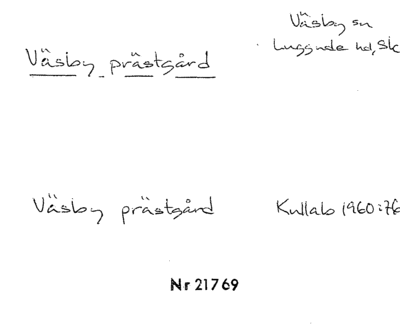 Väsby sn
Luggude hd, Sk
Väsby prästgård
Väsby prästgård
Kullabo 1960:76
Nr 21769